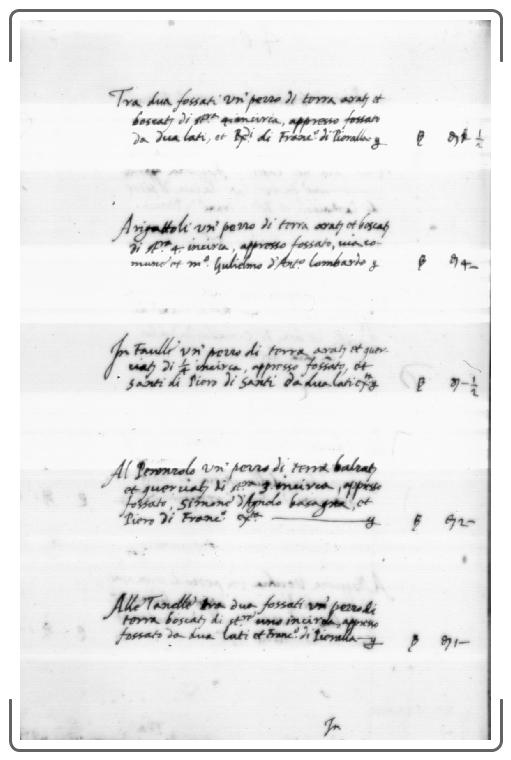 Tra dua fossati un pezzo di terra arat et
boscat di st.ra 4 incirca, appresso fossato
da dua lati, et di Franc.o di Pioralla
Arigattoli un pezzo di terra arat et boscat
di st.ra 4 incirca, appresso fossato, via co-
mune et m.o Gulielmo d'Ant.o lombardo 4 –
In Faulle un pezzo di terra arat et quer-
ciat di 1/4 incirca, appresso fossato, et
Santi di Piero di Santi da dua lati – 1/2
Al Peronzolo un pezzo di terra balzat
et querciat di st.ra 3 incirca, appresso
fossato, Simone d'Agnolo basagna, et
Piero di Franc.o 2 –
Alle Tanelle tra dua fossati un pezzo di
terra boscat di st.ro uno incirca, appresso
fossato da dua lati et Franc.o di Pioralla 1 –
In